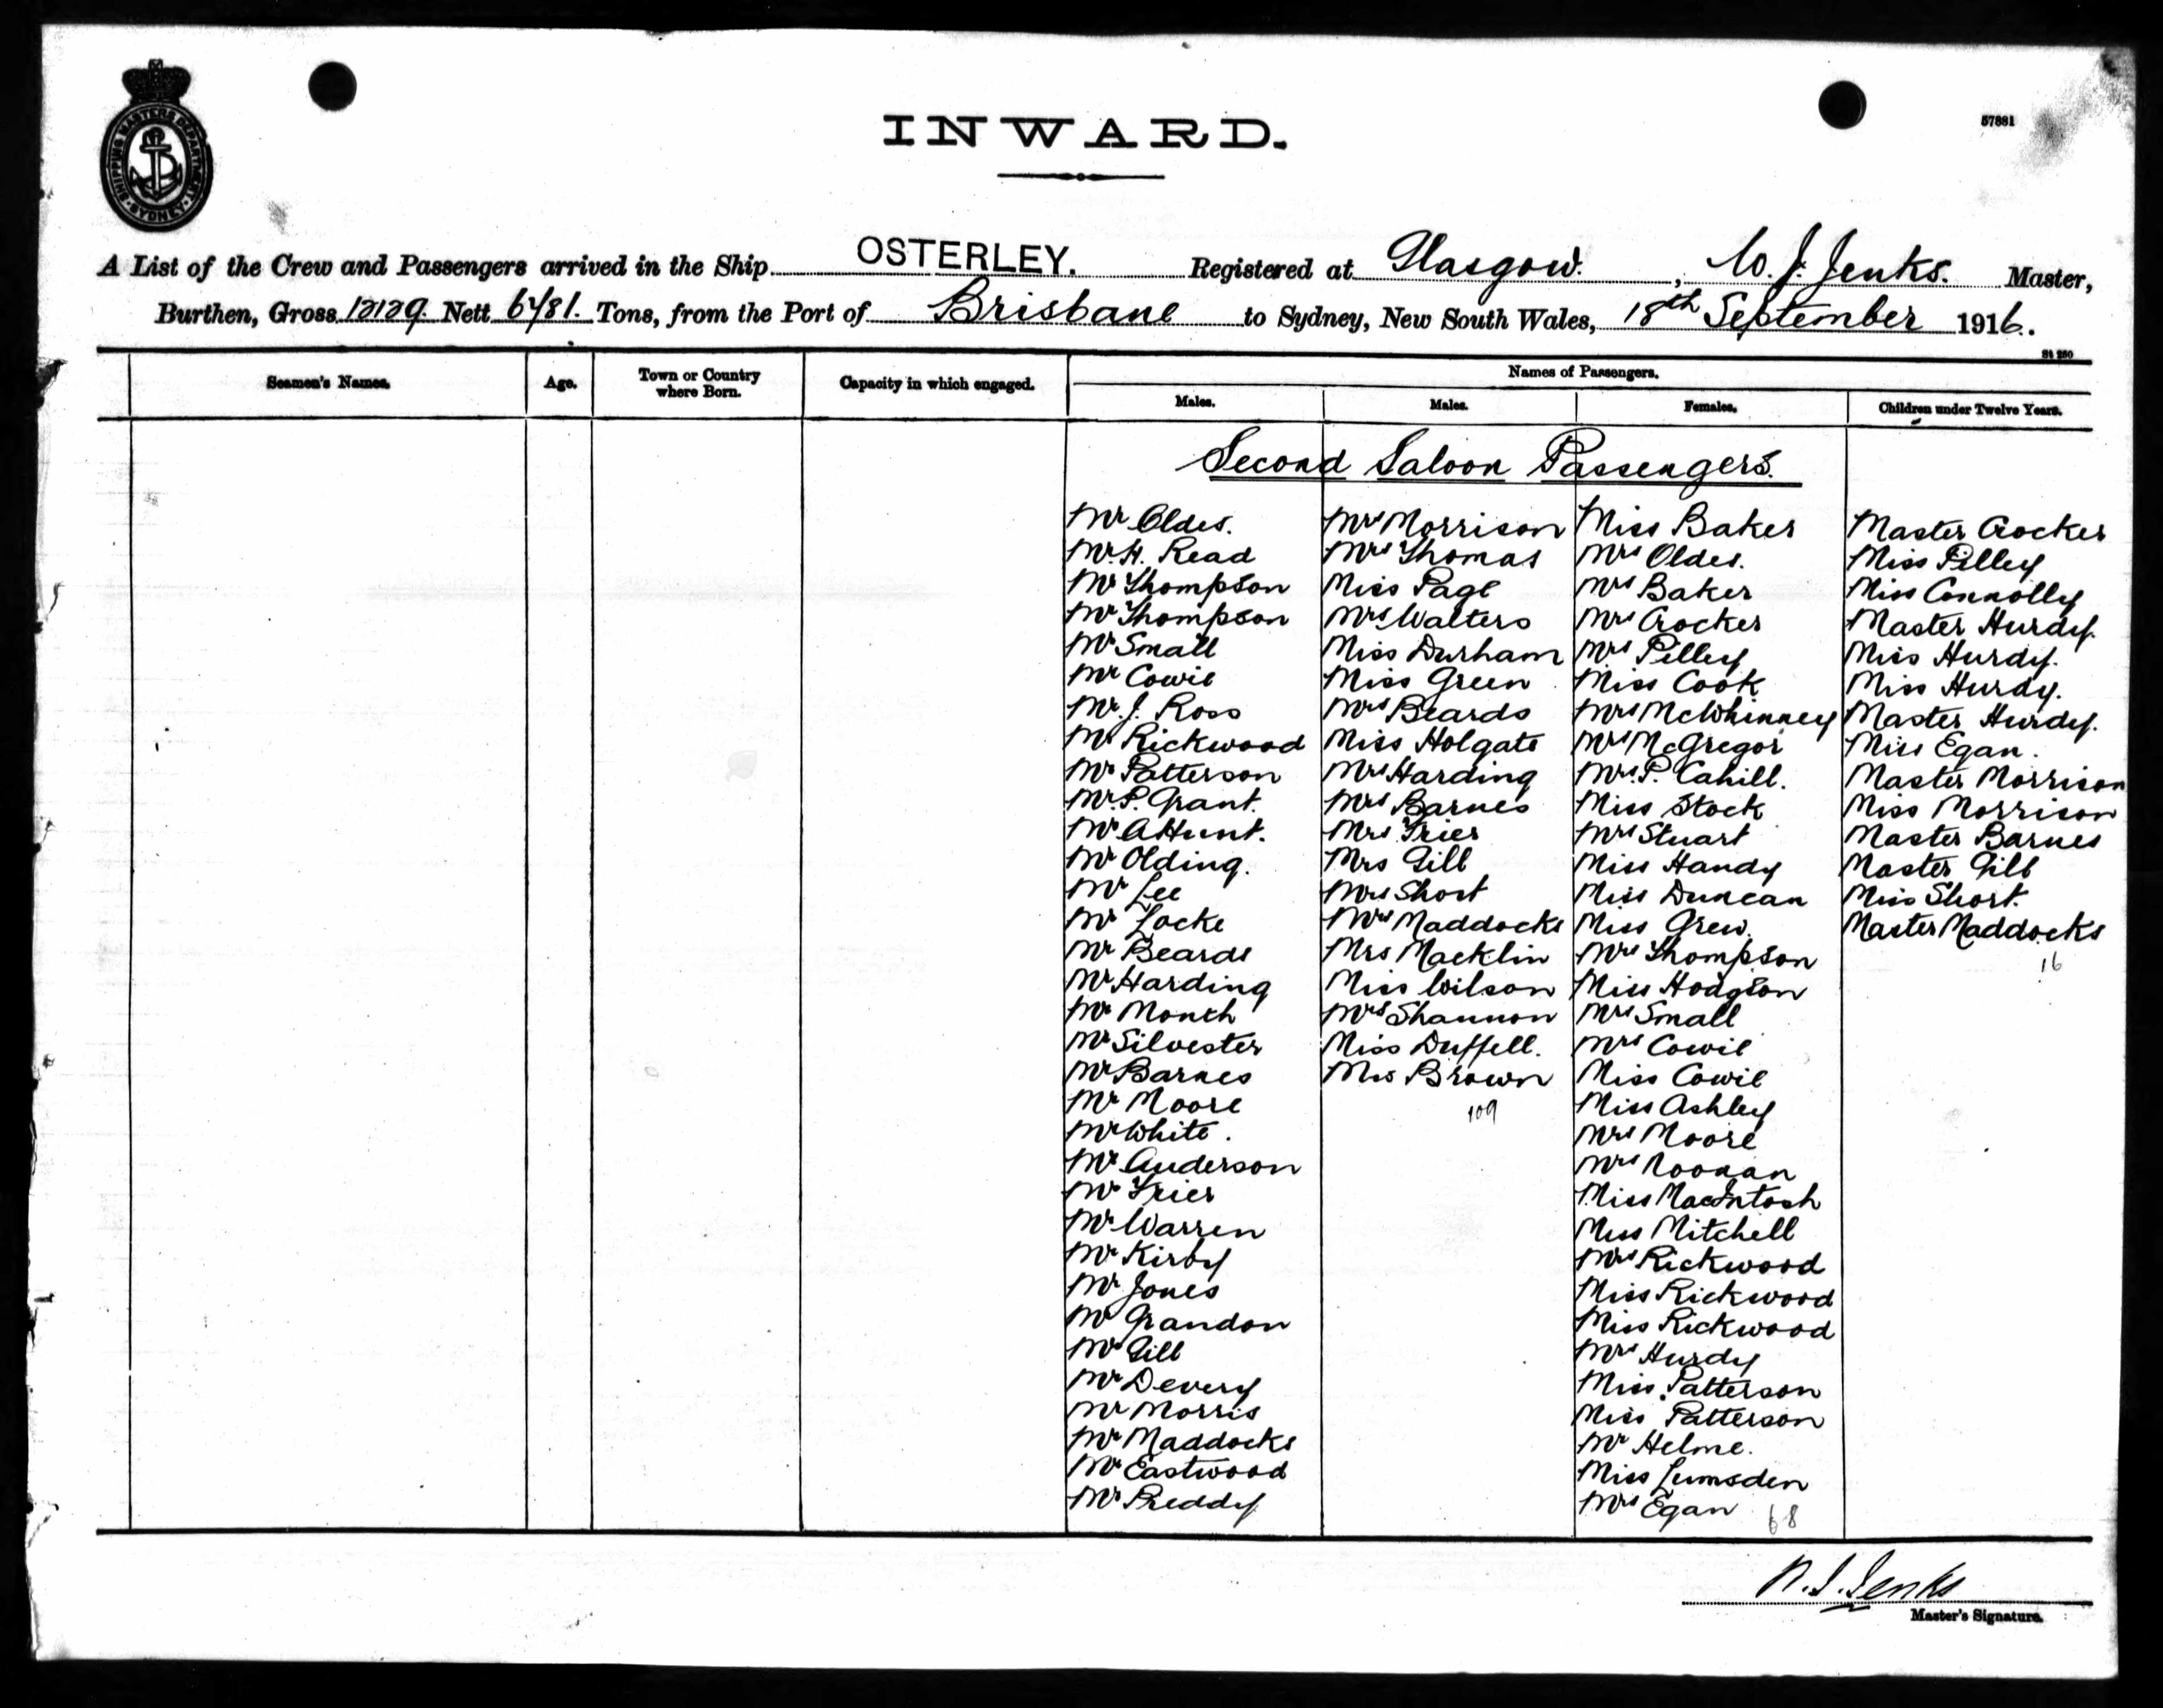 SHIPPING MASTERS DEPARTMENT
SYDNEY
57881
INWARD.
A List of the Crew and Passengers arrived in the Ship OSTERLEY. Registered at Glasgow. , W. J. Jenks. Master,
Burthen, Gross 12129. Nett 6781. Tons, from the Port of Brisbane to Sydney, New South Wales, 18th September 1916.
St 250
Seamen's Names.
Age.
Town or Country
where Born.
Capacity in which engaged.
Names of Passengers.
Males.
Males.
Females.
Children under Twelve Years.
Second Saloon Passengers.
Mr Oldes.
Mr H. Read
Mr Thompson
Mr Thompson
Mr Small
Mr Cowie
Mr J. Ross
Mr Rickwood
Mr Patterson
Mr P. Grant.
Mr A Hunt.
Mr Olding.
Mr Lee
Mr Locke
Mr Beards
Mr Harding
Mr Month
Mr Silvester
Mr Barnes
Mr Moore
Mr White.
Mr Anderson
Mr Frier
Mr Warren
Mr Kirby
Mr Jones
Mr Grandon
Mr Gill
Mr Devery
Mr Morris
Mr Maddocks
Mr Eastwood
Mr Preddy
Mrs Morrison
Mrs Thomas
Miss Page
Mrs Walters
Miss Durham
Miss Green
Mrs Beards
Miss Holgate
Mrs Harding
Mrs Barnes
Mrs Frier
Mrs Gill
Mrs Short
Mrs Maddocks
Mrs Macklin
Miss Wilson
Mrs Shannon
Miss Duffell.
Mrs Brown
109
Miss Baker
Mrs Oldes.
Mrs Baker
Mrs Crocker
Mrs Pilley
Miss Cook
Mrs McWhinney
Mrs McGregor
Mrs P. Cahill.
Miss Stock
Mrs Stuart
Miss Handy
Miss Duncan
Miss Grew.
Mrs Thompson
Miss Hodgson
Mrs Small
Mrs Cowie
Miss Cowie
Miss Ashley
Mrs Moore
Mrs Noonan
Miss MacIntosh
Miss Mitchell
Mrs Rickwood
Miss Rickwood
Miss Rickwood
Mrs Hurdy
Miss Patterson
Miss Patterson
Mr Helme.
Miss Lumsden
Mrs Egan
68
Master Crocker
Miss Pilley
Miss Connolly
Master Hurdy.
Miss Hurdy.
Miss Hurdy.
Master Hurdy.
Miss Egan.
Master Morrison
Miss Morrison
Master Barnes
Master Gill
Miss Short.
Master Maddocks
16
Master's Signature.